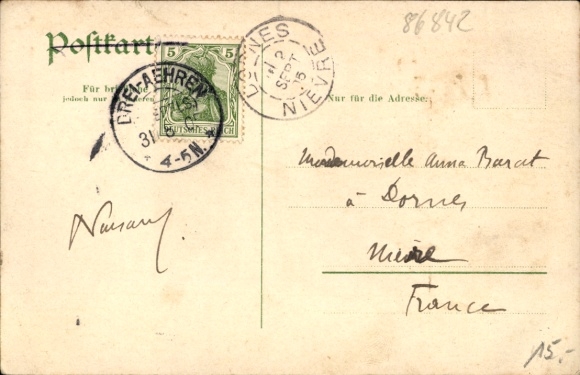 86842
Postkarte
5 5
DEUTSCHES REICH
DREI-AEHREN
31 8
4-5N.
DORNES
2
SEPT
NIEVRE
Für
jedoch nur
Nur für die Adresse.
Mademoiselle Anna Barat
à Dornes
Nièvre
France
15.-